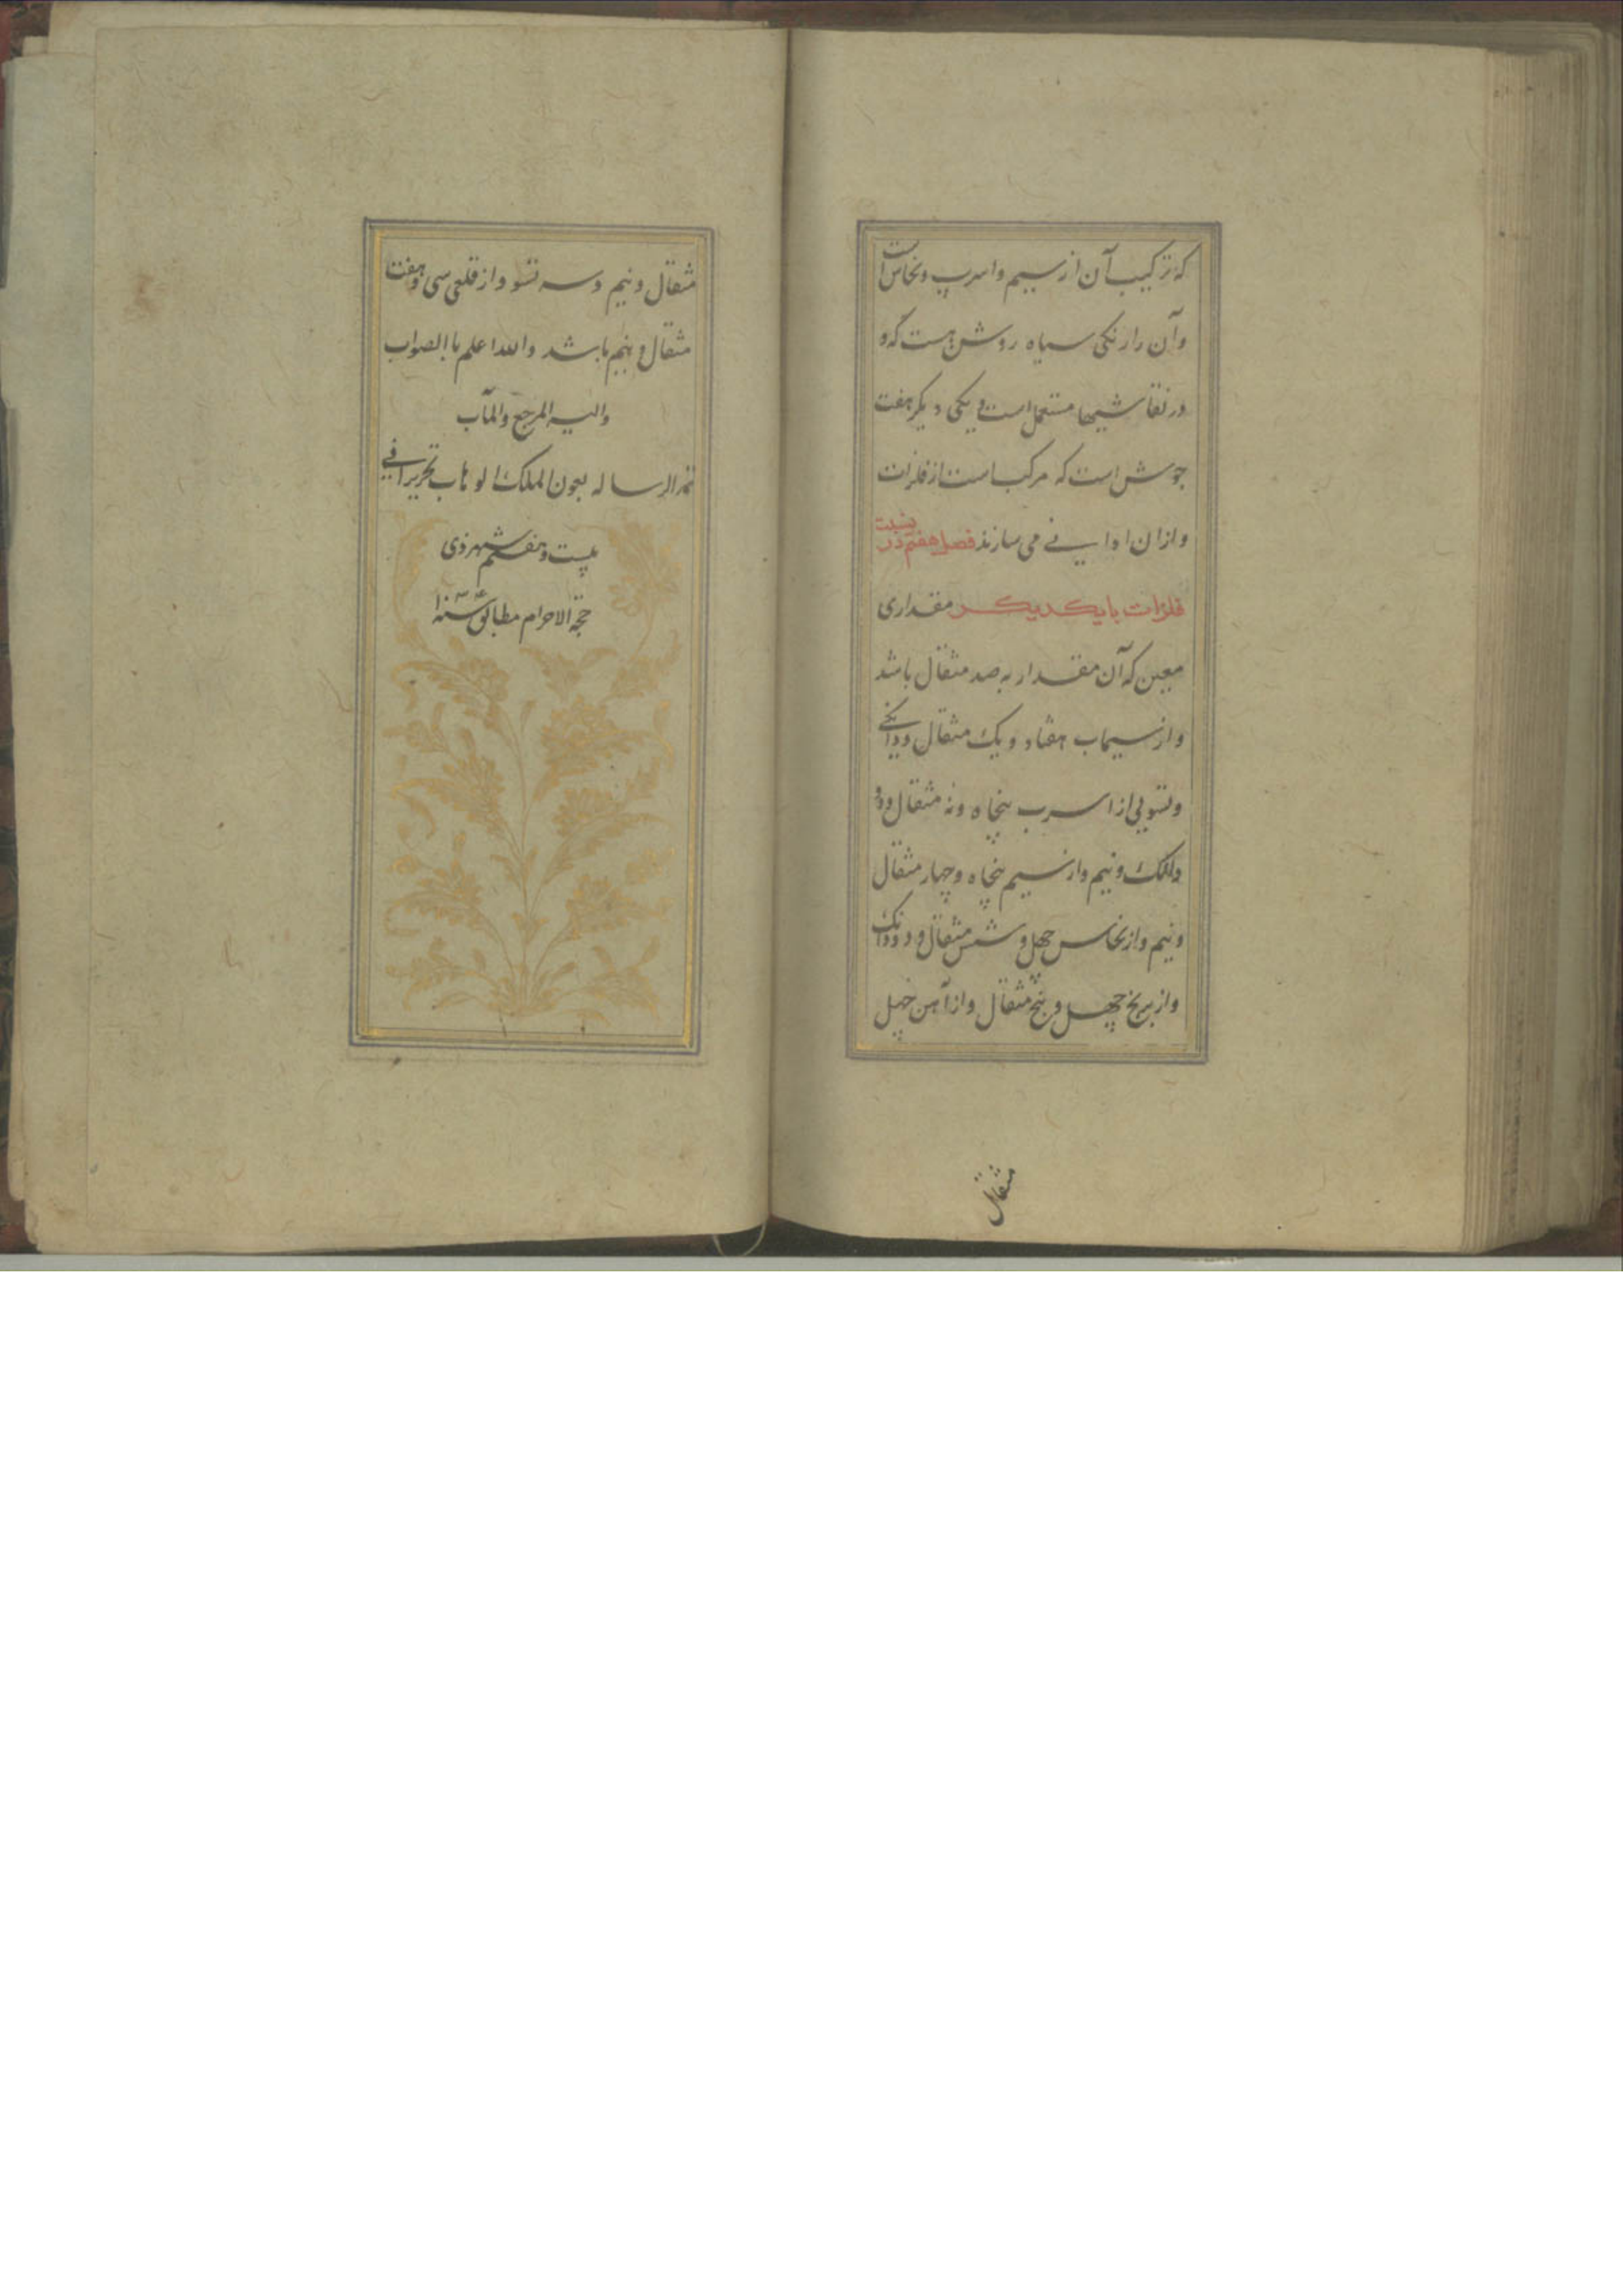 که ترکیب آن از سیم و اسرب و نحاس است
و آن را رنکی سیاه روشن هست که و
در نقاشیها مستعمل است و یکی دیکر هفت
جوش است که مرکب است از فلزات
و ازان اوانی می سازند فصل هفتم در نسبت
فلزات بایکدیکر مقداری
معین که آن مقدار به صد مثقال باشد
و از سیماب هفتاد و یک مثقال و دانکی
و تسویی از اسرب پنجاه و نه مثقال و دو
دانک و نیم و از سیم پنجاه و چهار مثقال
و نیم و از نحاس چهل و شش مثقال و دو دانک
و از برنج چهل و پنج مثقال و از آهن چهل
مثقال
مثقال و نیم و سه تسو و از قلعی سی و هفت
مثقال و نیم باشد والله اعلم باالصواب
والیه المرجع والمآب
تمة الرساله بعون الملک الوهاب تحریرا فی
بیست و هفتم شهر ذی
حجة الاحرام مطابق سنه